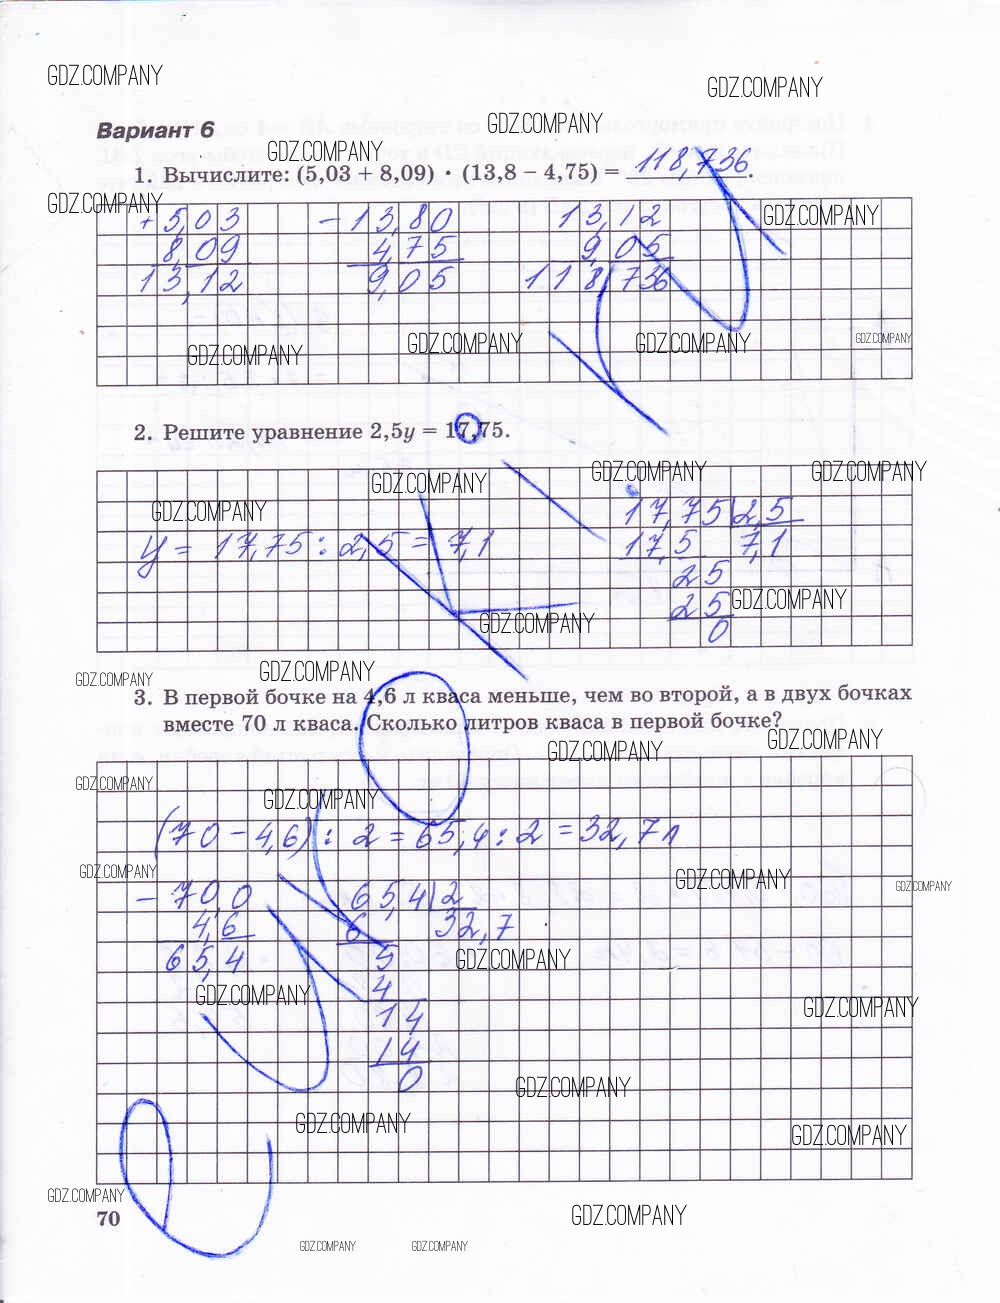 GDZ.COMPANY
GDZ.COMPANY
Вариант 6
GDZ.COMPANY
GDZ.COMPANY
1. Вычислите: (5,03 + 8,09) · (13,8 – 4,75) = 118,736.
GDZ.COMPANY
GDZ.COMPANY
+ 5,03 – 13,80 13,12
8,09 4,75 9,05
13,12 9,05 118,736
GDZ.COMPANY
GDZ.COMPANY
GDZ.COMPANY
GDZ.COMPANY
2. Решите уравнение 2,5y = 17,75.
GDZ.COMPANY
GDZ.COMPANY
GDZ.COMPANY
GDZ.COMPANY
17,75 2,5
y = 17,75 : 2,5 = 7,1 17,5 7,1
25
25
GDZ.COMPANY
GDZ.COMPANY
0
GDZ.COMPANY
GDZ.COMPANY
3. В первой бочке на 4,6 л кваса меньше, чем во второй, а в двух бочках
вместе 70 л кваса. Сколько литров кваса в первой бочке?
GDZ.COMPANY
GDZ.COMPANY
GDZ.COMPANY
GDZ.COMPANY
(70 – 4,6) : 2 = 65,4 : 2 = 32,7 л
GDZ.COMPANY
GDZ.COMPANY
GDZ.COMPANY
– 70,0 65,4 2
4,6 6 32,7
65,4 5
GDZ.COMPANY
4
GDZ.COMPANY
GDZ.COMPANY
14
14
0
GDZ.COMPANY
GDZ.COMPANY
GDZ.COMPANY
GDZ.COMPANY
70
GDZ.COMPANY
GDZ.COMPANY
GDZ.COMPANY